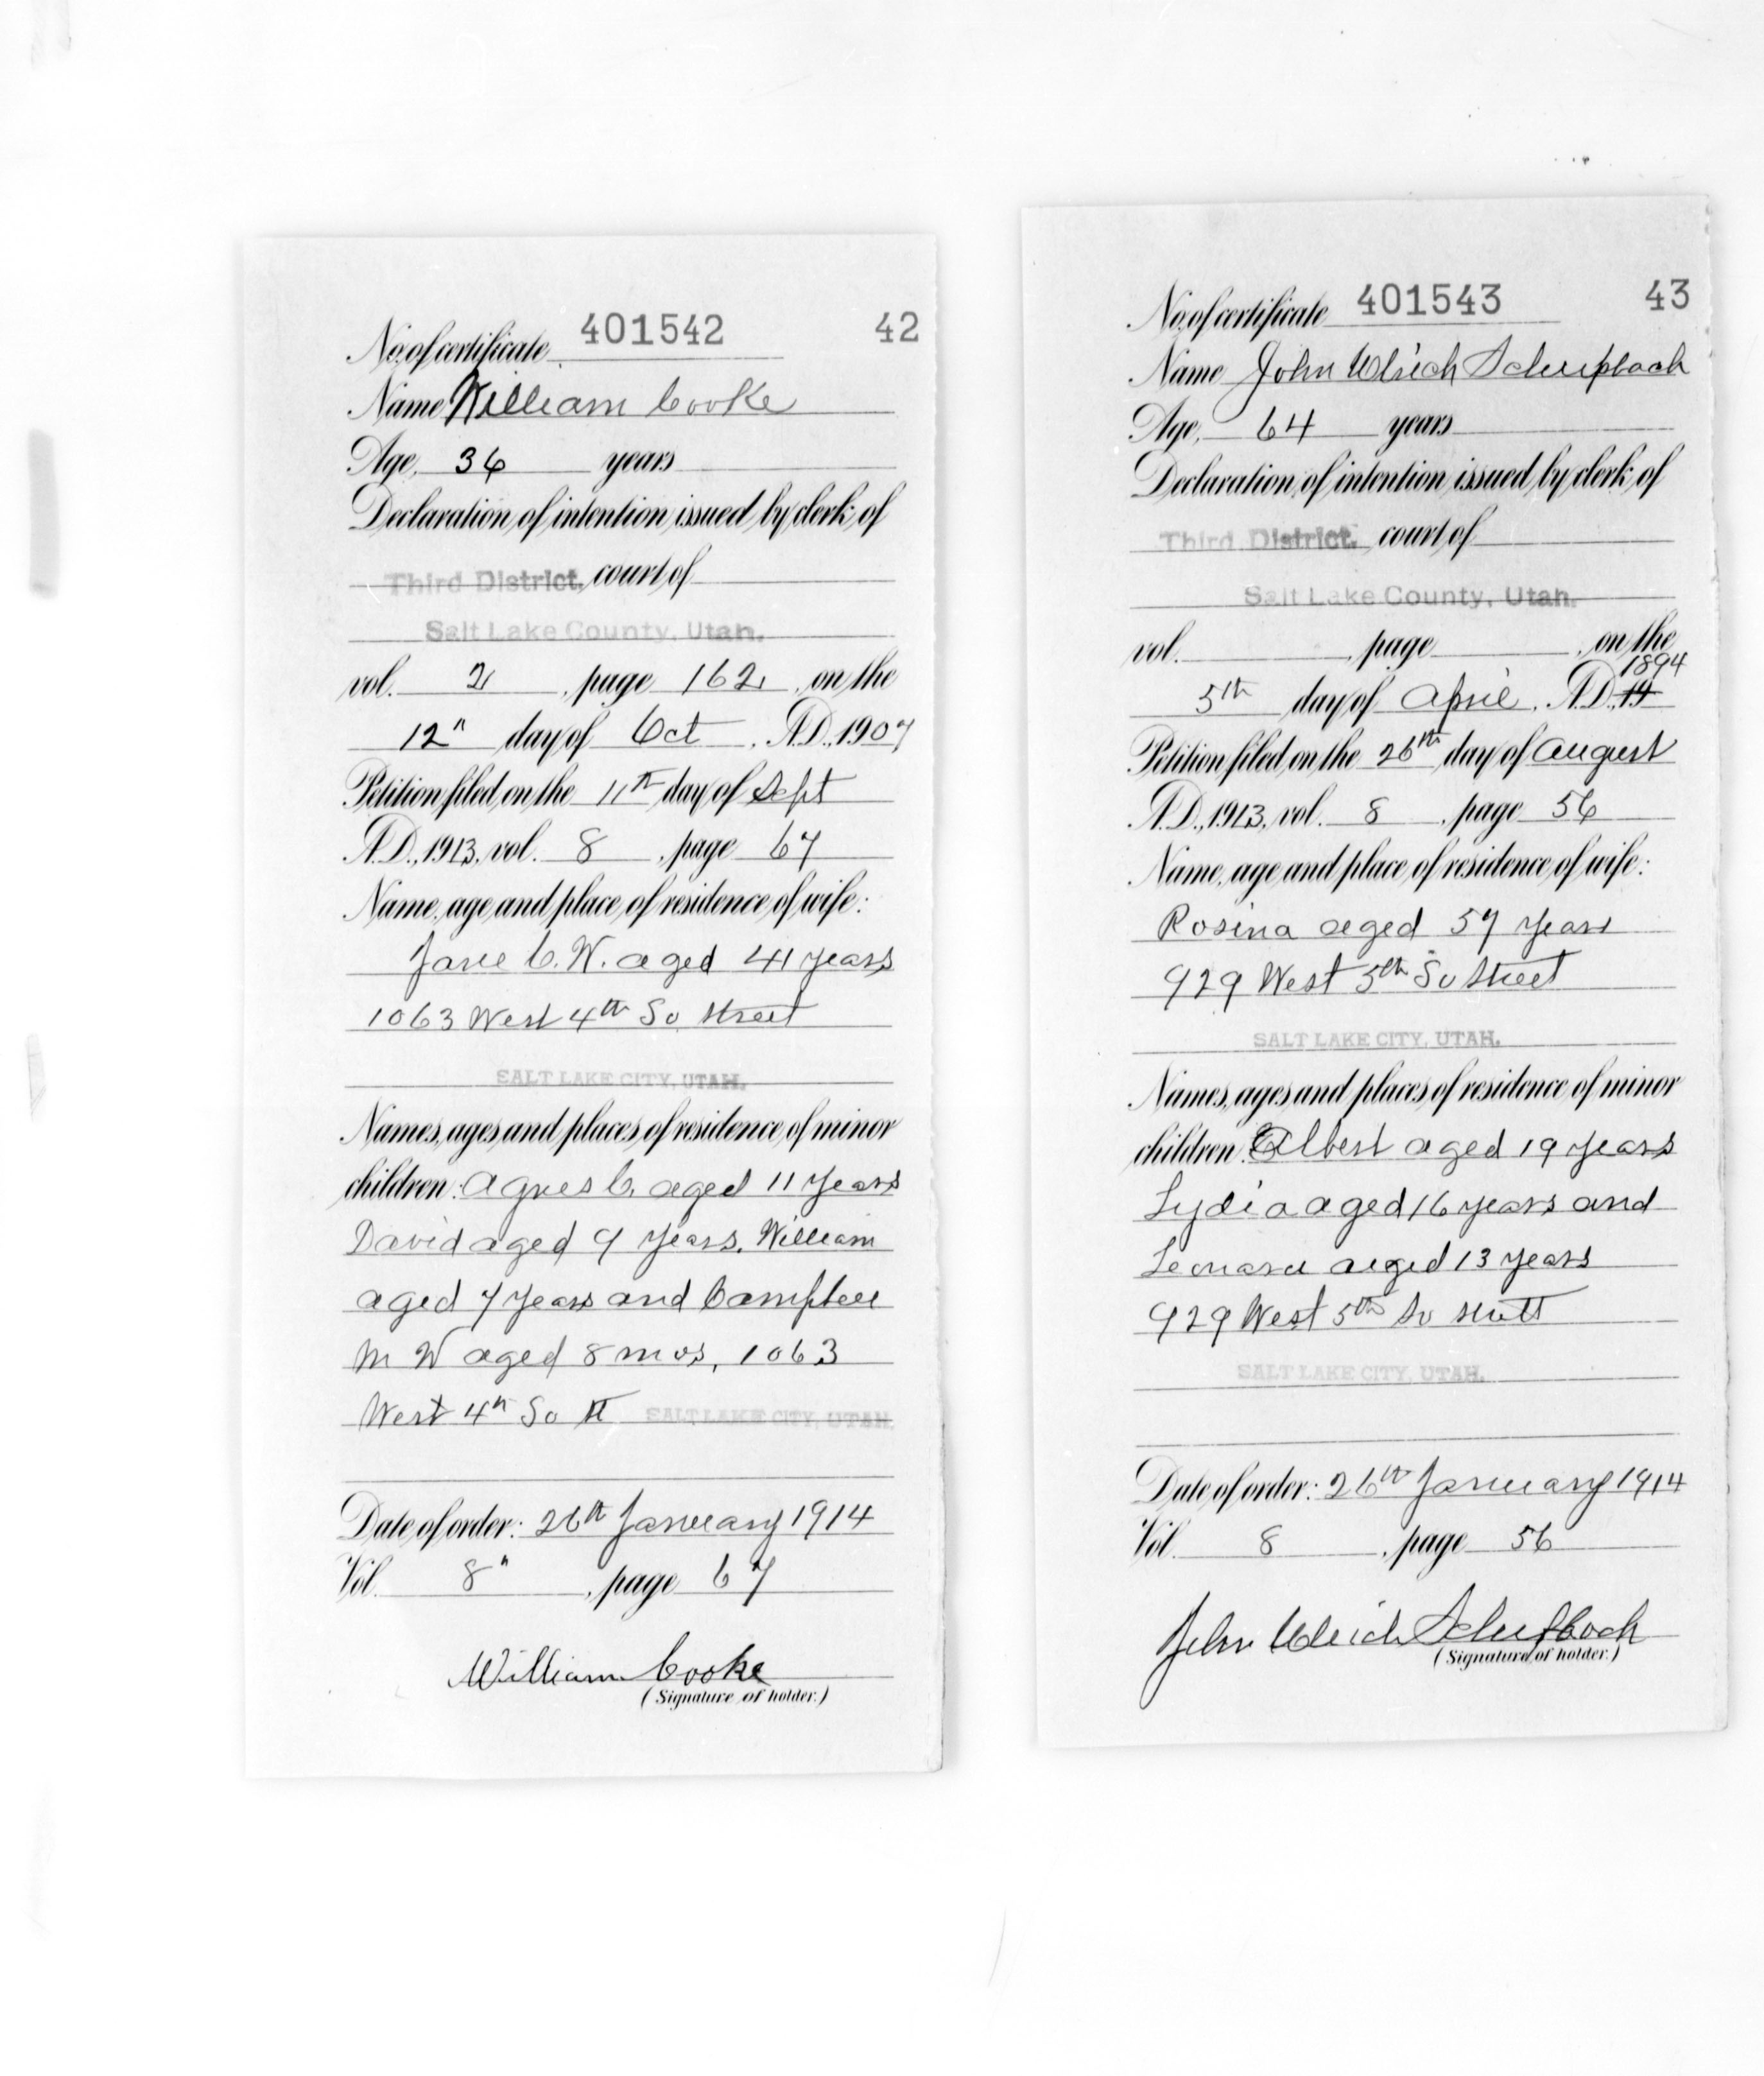 No. of certificate 401542 42
Name William Cooke
Age, 36 years
Declaration of intention issued by clerk of
Third District, court of
Salt Lake County, Utah.
vol. 2, page 162, on the
12" day of Oct, A.D., 1907
Petition filed on the 11th day of Sept
A.D., 1913, vol. 8, page 67
Name, age and place of residence of wife:
Jane C. W. aged 41 years
1063 West 4th So Street
SALT LAKE CITY, UTAH.
Names, ages and places of residence of minor
children: Agnes C. aged 11 years
David aged 9 years, William
aged 7 years and Campbell
M W aged 8 mos, 1063
West 4th So St SALT LAKE CITY, UTAH.
Date of order: 26th January 1914
Vol. 8", page 67
William Cooke
(Signature of holder.)
No. of certificate 401543 43
Name John Ulrich Schupbach
Age, 64 years
Declaration of intention issued by clerk of
Third District, court of
Salt Lake County, Utah.
vol. , page , on the
1894
5th day of April, A.D., 19
Petition filed on the 26th day of August
A.D., 1913, vol. 8, page 56
Name, age and place of residence of wife:
Rosina aged 57 years
929 West 5th So Street
SALT LAKE CITY, UTAH.
Names, ages and places of residence of minor
children: Albert aged 19 years
Lydia aged 16 years and
aged 13 years
929 West 5th So Street
SALT LAKE CITY, UTAH.
Date of order: 26th January 1914
Vol. 8, page 56
John Ulrich Schupbach
(Signature of holder.)